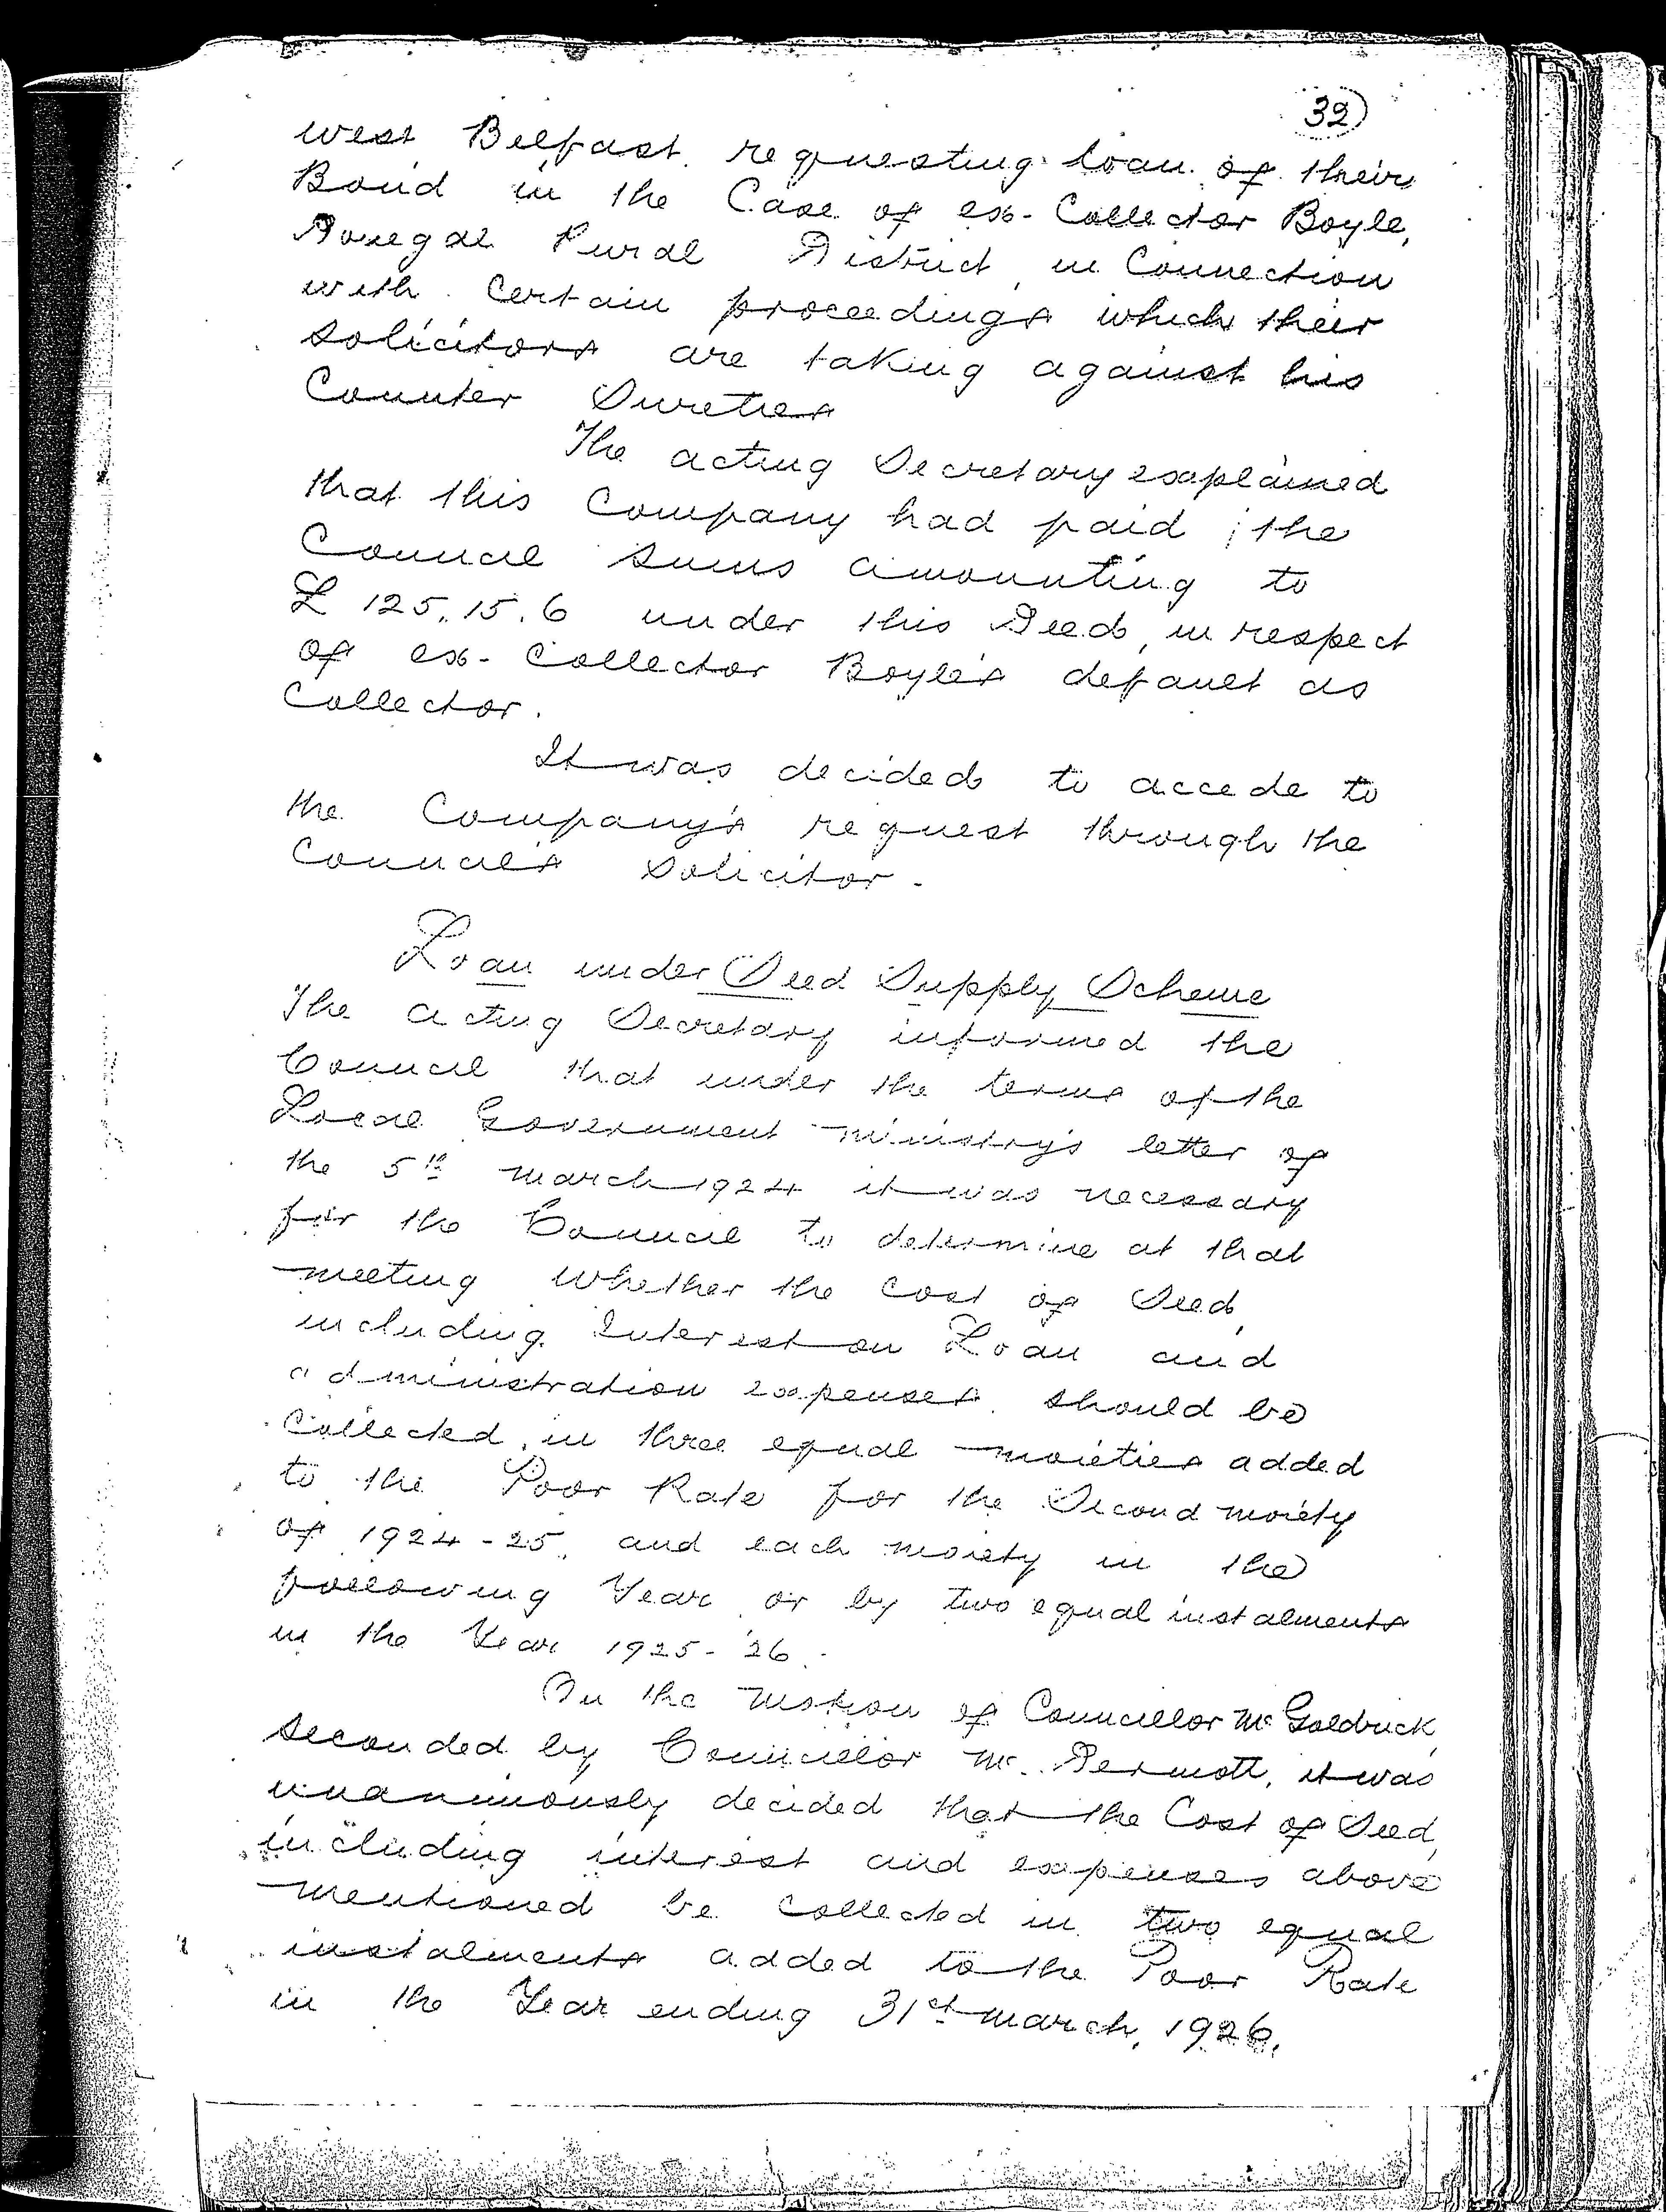 32
west Belfast requesting loan of their
Bond in the Case of ex-Collector Boyle,
Donegal Rural District, in Connection
with certain proceedings which their
solicitors are taking against his
Counter Sureties
The acting Secretary explained
that this Company had paid the
Council sums amounting to
£ 125.15.6 under this Deed, in respect
of ex-Collector Boyle's default as
Collector.
It was decided to accede to
the Company's request through the
Council's Solicitor.
Loan under Seed Supply Scheme
The acting Secretary informed the
Council that under the terms of the
Local Government Ministry's letter of
the 5th March 1924 it was necessary
for the Council to determine at that
meeting whether the Cost of Seed,
including Interest on Loan and
administration expenses should be
Collected in three equal moieties added
to the Poor Rate for the Second moiety
of 1924-25, and each moiety in the
following Year or by two equal instalments
in the Year 1925-'26.
On the motion of Councillor McGoldrick,
seconded by Councillor McDermott, it was
unanimously decided that the Cost of Seed,
including interest and expenses above
mentioned be collected in two equal
instalments added to the Poor Rate
in the Year ending 31st March, 1926.